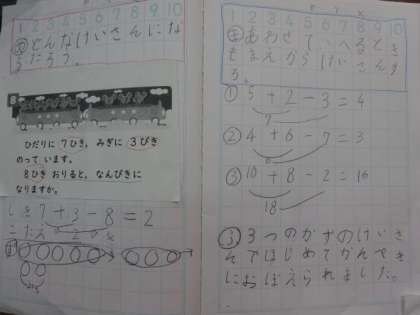 1 2 3 4 5 6 7 8 9 10
どんなけいさんにな
るだろう。
8
ひだりに 7ひき, みぎに 3びき
のって います。
8ひき おりると, なんびきに
なりますか。
しき 7+3-8=2
こたえ 2ひき
1 2 3 4 5 6 7 8 9 10
まえから けいさんす
る。
① 5+2-3=4
7
② 4+6-7=3
③ 10+8-2=16
18
3つのかずのけいさ
んではじめてかんぺき
におぼえられました。